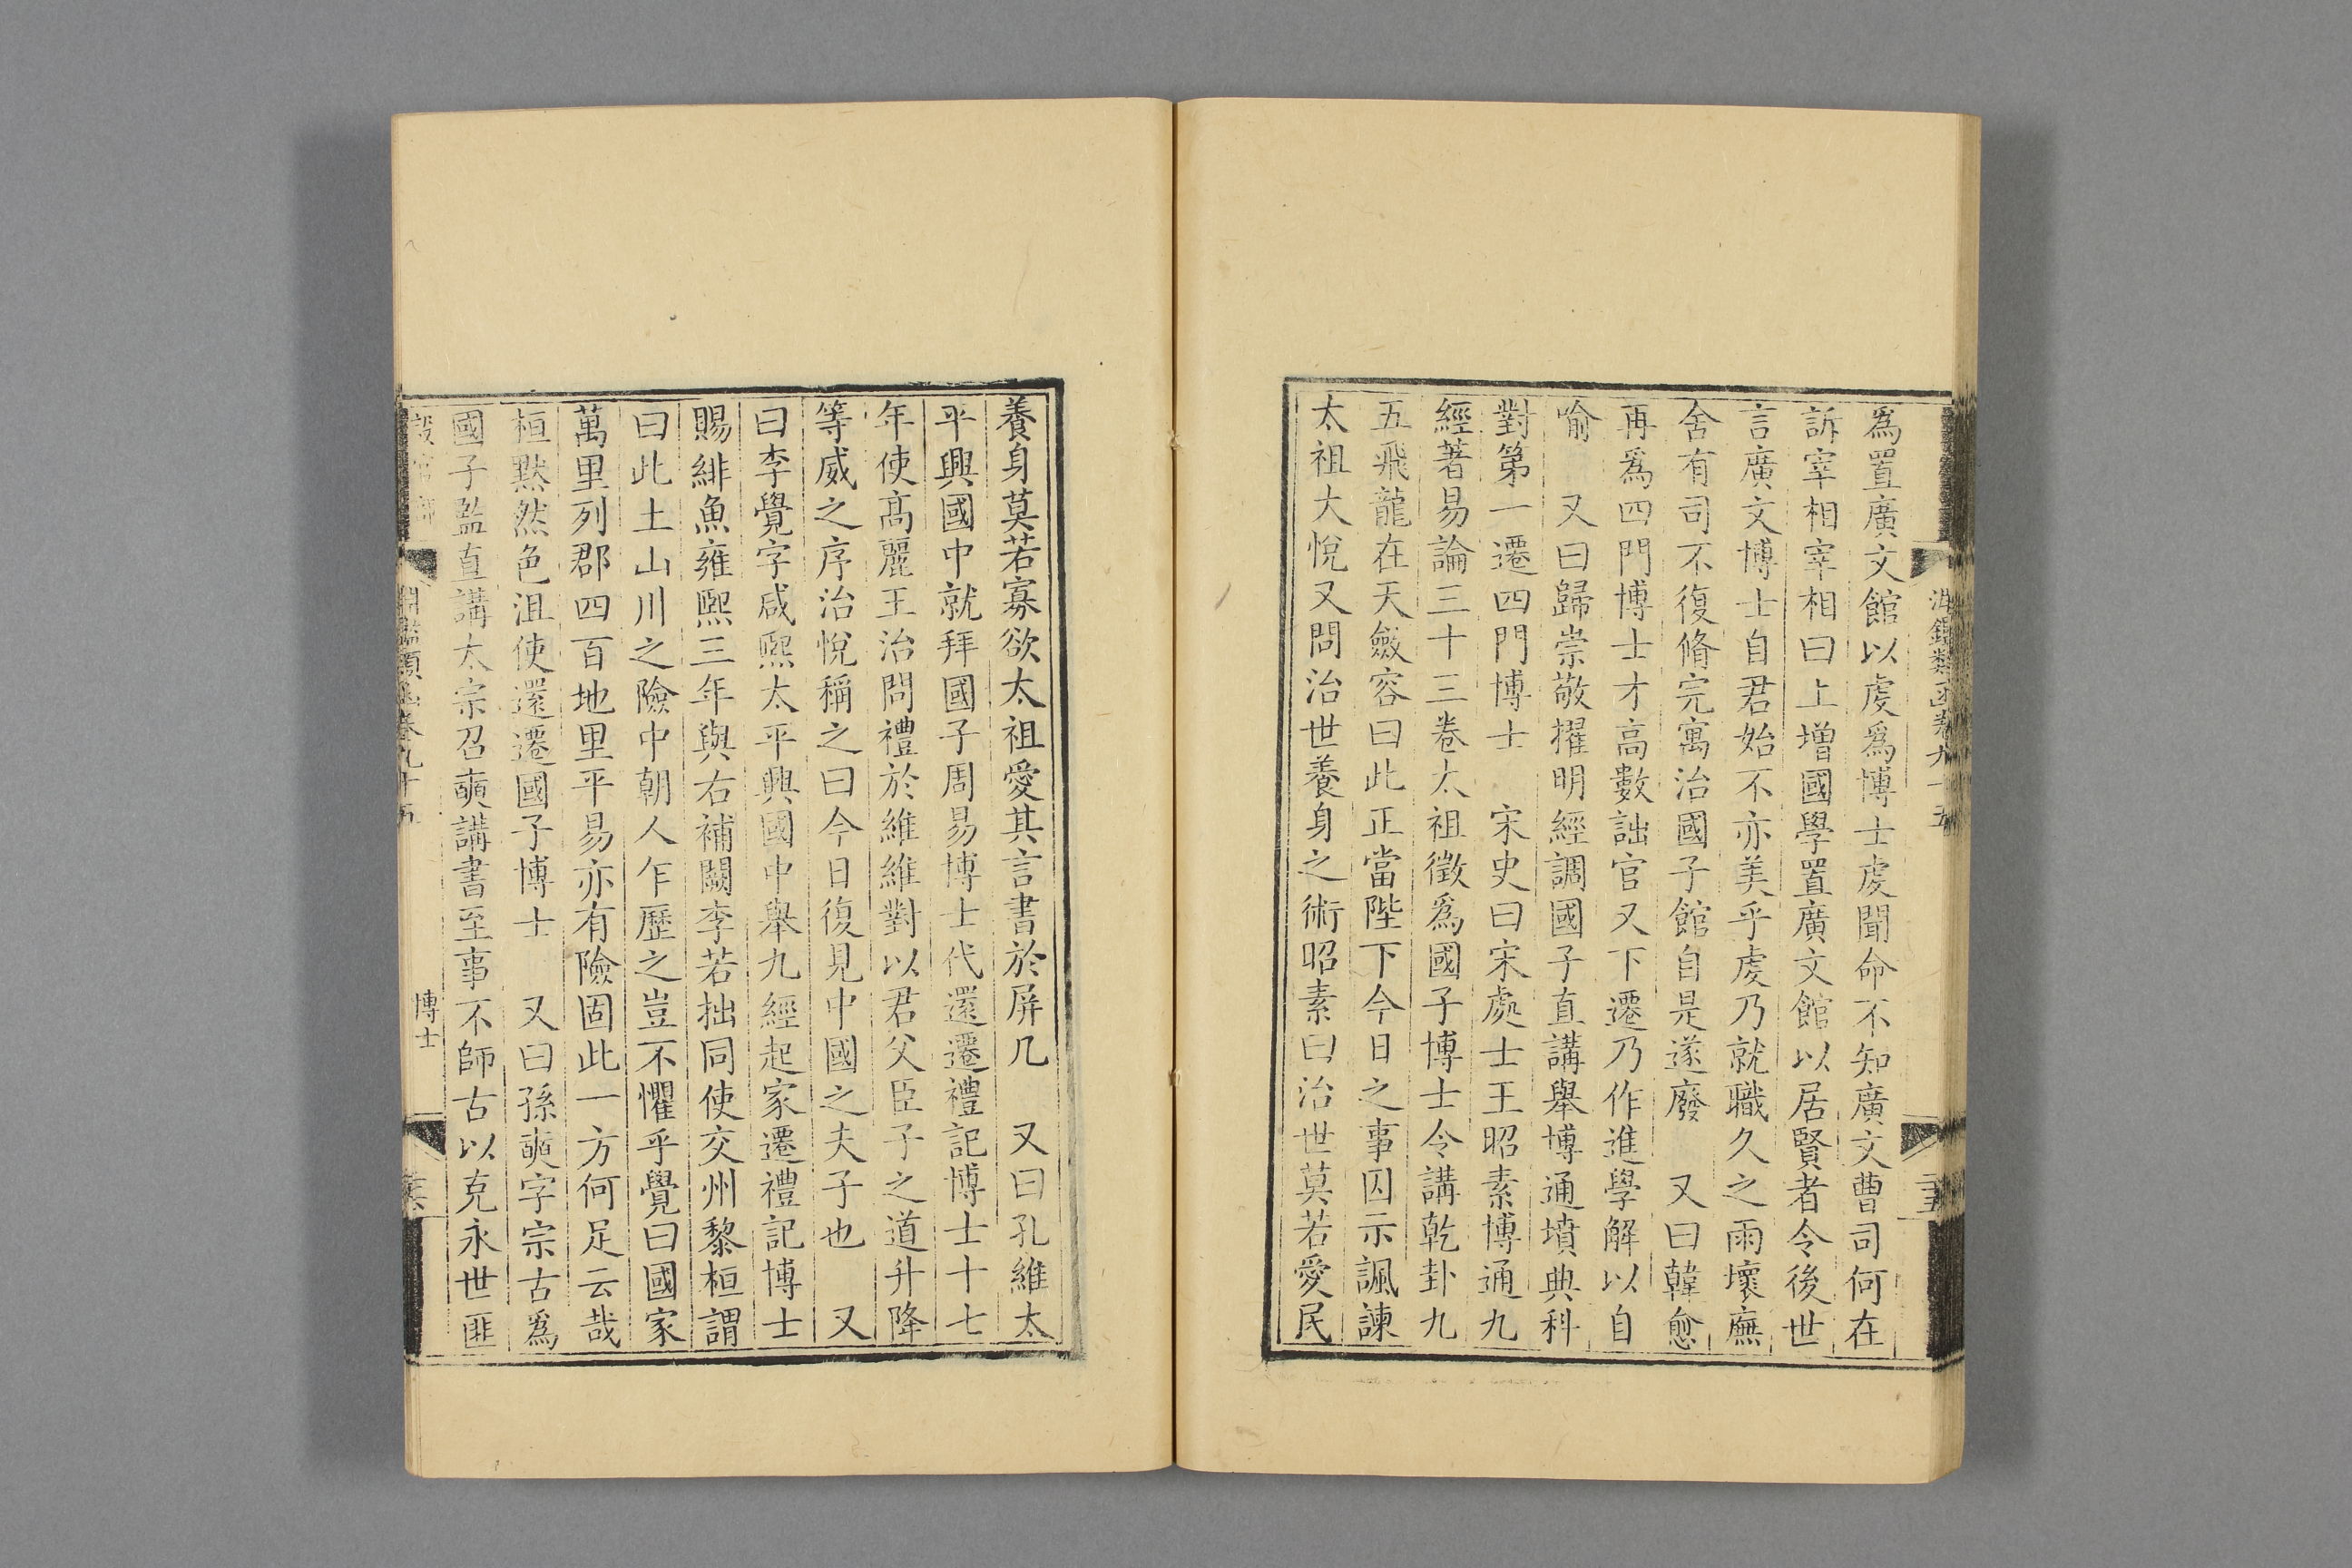 淵鑑類函卷九十五
為置廣文館以虔為博士虔聞命不知廣文曹司何在
訴宰相宰相曰上增國學置廣文館以居賢者令後世
言廣文博士自君始不亦美乎虔乃就職久之雨壞廡
舍有司不復脩完寓治國子館自是遂廢　又曰韓愈
再為四門博士才高數詘官又下遷乃作進學解以自
喻　又曰歸崇敬擢明經調國子直講舉博通墳典科
對第一遷四門博士　宋史曰宋處士王昭素博通九
經著易論三十三卷太祖徵為國子博士令講乾卦九
五飛龍在天斂容曰此正當陛下今日之事因示諷諫
太祖大悅又問治世養身之術昭素曰治世莫若愛民
養身莫若寡欲太祖愛其言書於屏几　又曰孔維太
平興國中就拜國子周易博士代還遷禮記博士十七
年使高麗王治問禮於維維對以君父臣子之道升降
等威之序治悅稱之曰今日復見中國之夫子也　又
曰李覺字咸熙太平興國中舉九經起家遷禮記博士
賜緋魚雍熙三年與右補闕李若拙同使交州黎桓謂
曰此土山川之險中朝人乍歷之豈不懼乎覺曰國家
萬里列郡四百地里平易亦有險固此一方何足云哉
桓默然色沮使還遷國子博士　又曰孫奭字宗古為
國子監直講太宗召奭講書至事不師古以克永世匪
設官部 淵鑑類函卷九十五 博士